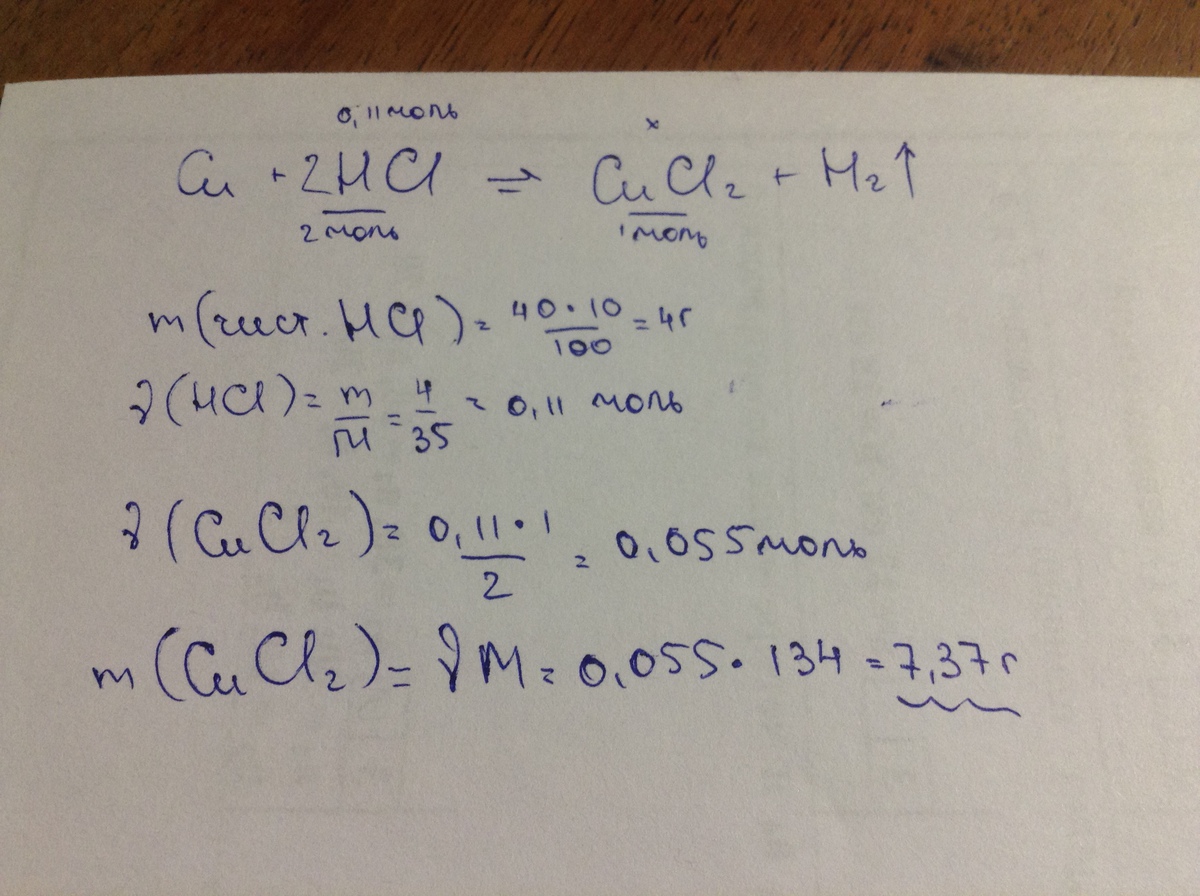 0,11 моль x
Cu + 2HCl => CuCl₂ + H₂↑
2 моль 1 моль
m(чист. HCl) = 40·10/100 = 4г
ν(HCl) = m/M = 4/35 = 0,11 моль
ν(CuCl₂) = 0,11·1/2 = 0,055 моль
m(CuCl₂) = νM = 0,055·134 = 7,37г